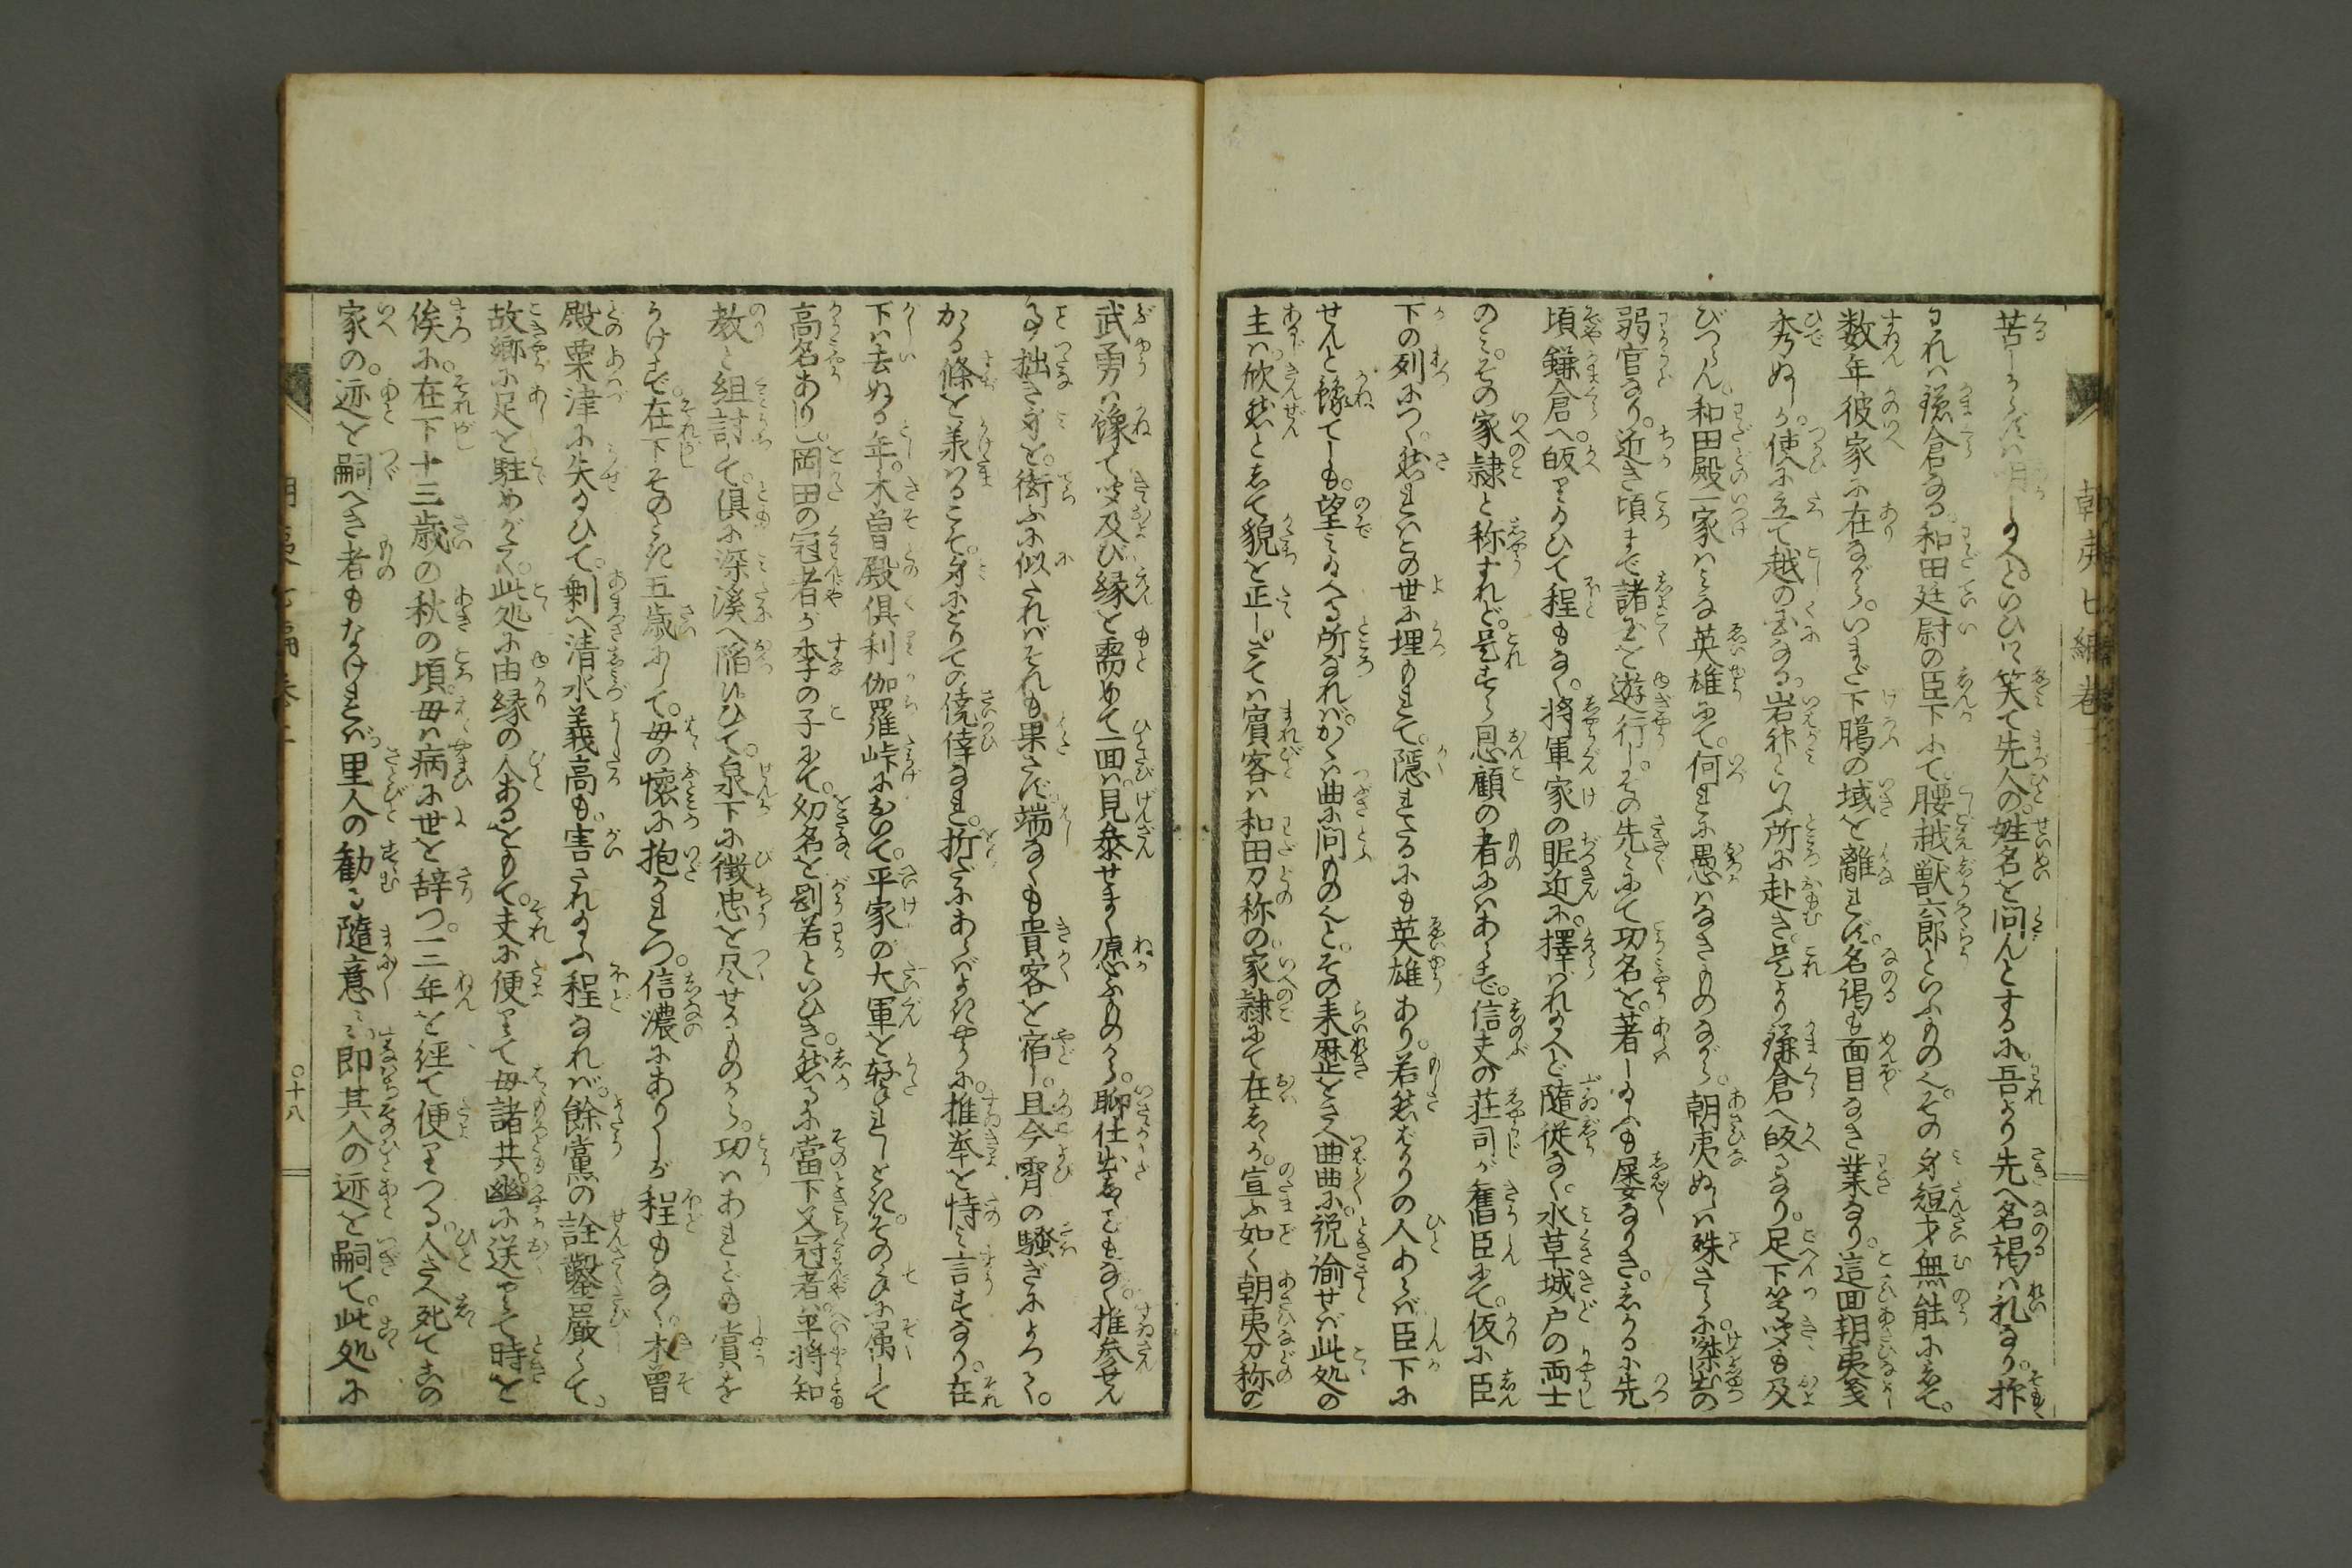 苦しからずは明し給へといひつゝ笑て先人の。姓名を問んとするに。吾より先へ名謁は礼なり。抑
われは鎌倉なる。和田廷尉の臣下にて腰越獣六郎といふものぞ。その身短才無能にして。
数年彼家に在ながら。いまだ下﨟の域を離れず。名謁も面目なき業なり。這回朝夷義
秀ぬしが。使に立て越の国なる。岩神といふ所に赴き。是より鎌倉へ皈るなり。足下等も聞も及
びつらん。和田殿一家はみな英雄にて。何れに愚はなきものながら。朝夷ぬしは殊さらに。傑出の
弱官なり。近き頃まで諸国を遊行し。その先々にて功名を。著し給ふも屡なりき。しかるに先
頃鎌倉へ。皈り給ひて程もなく。将軍家の昵近に。擇ばれ給へど随従なく。水草城戸の両士
のみ。その家隷と称すれど。是すら恩顧の者にはあらず。信夫の荘司が舊臣にて。仮に臣
下の列につく。然ればこの世に埋もれて。隠れたるにも英雄あり。若然ばかりの人あらば臣下に
せんと豫てしも。望み給へる所なれば。かくは曲に問ものぞ。その来歴をさへ曲曲に。説諭せば此処の
主は。欣然として貌を正し。さては賓客は和田刀称の。家隷にて在しゝか。宣ふ如く朝夷刀称の
武勇は豫て聞及び縁を需めて一面は。見参せまく願ふものから。聊仕出しゝ事もなく。推参せん
事拙き身を。衒ふに似たればそれも果さず。端なくも貴客を宿し。且今宵の騒ぎによつて。
かゝる條を承はること。身にとりての僥倖なれ。折だにあらばよきやうに。推挙を恃み言すなり。在
下は去ぬる年。木曽殿倶利伽羅峠において。平家の大軍を轻したまひしとき。そのみ手に属して
高名ありし。岡田の冠者が季の子にて。幼名を剛若といひき。然るに當下父冠者は。平将知
教と組討て。倶に深溪へ陥ひつひて。泉下に徴忠を尽せるものから。功はあれども賞を
うけずで。在下そのとき五歳にして。母の懐に抱かれつ。信濃にありしが程もなく。木曽
殿粟津に失給ひて。剰へ清水義高も。害され給ふ程なれば。餘黨の詮鑿嚴くて、
故郷に足を駐めがたく。此処に由縁の人あるをもて。夫に便りて母諸共。幽に送やりて時を
俟に。在下十三歳の秋の頃。母は病に世を辞つ。二年を經て便りつる。人さへ死てこの
家の。迹を嗣べき者もなければ。里人の勸る随意に。即其人の迹を嗣て。此処に
朝夷七編巻
〇十八